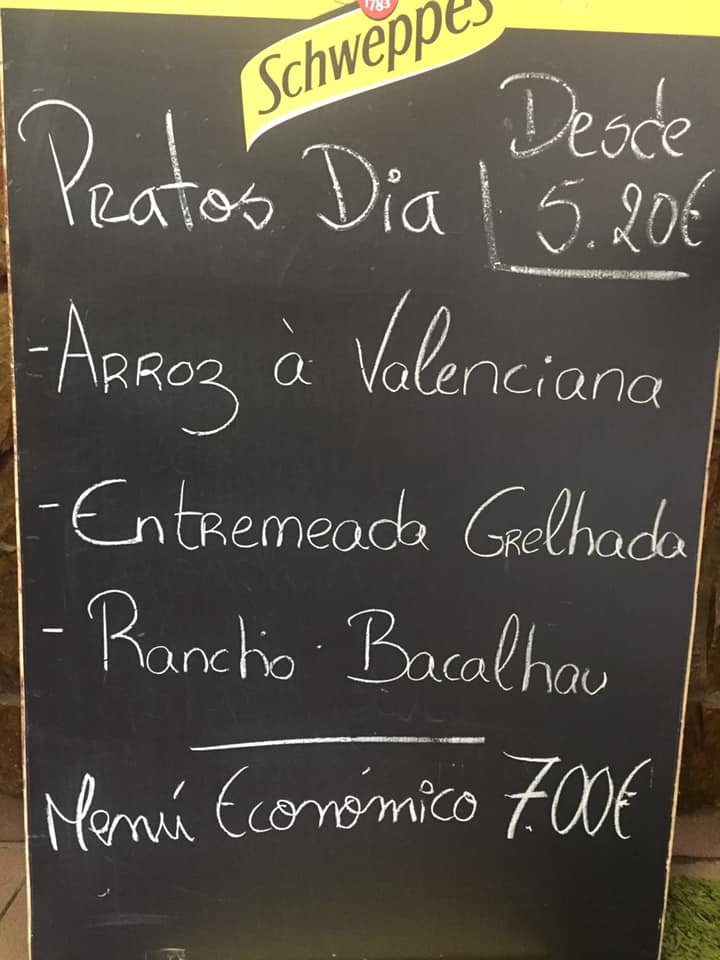 1783
Schweppes
Desde
Pratos Dia 5.20€
- Arroz à Valenciana
- Entremeada Grelhada
- Rancho Bacalhau
Menú Económico 7.00€